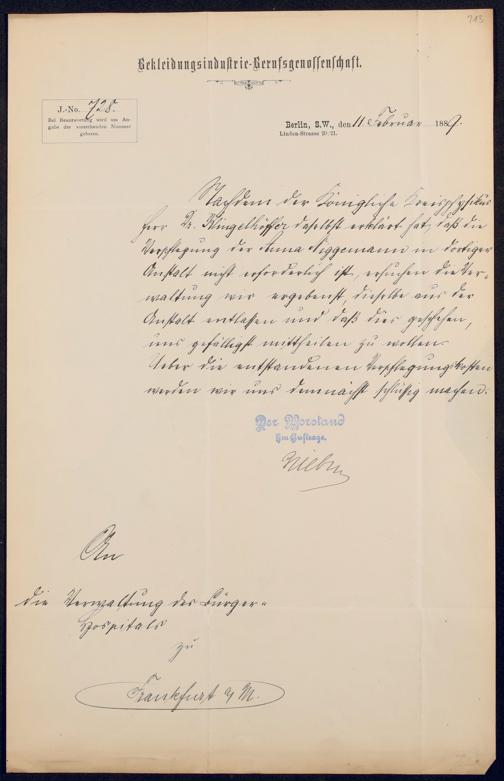 213
Bekleidungsindustrie-Berufsgenossenschaft.
J.-No. 728.
Bei Beantwortung wird um An-
gabe der vorstehenden Nummer
gebeten.
Berlin, S.W., den 11 Februar 1889.
Linden-Strasse 20/21.
Nachdem der Königliche Kreisphysikus
Herr Dr. Klingelhöffer daselbst erklärt hat, daß die
Verpflegung der Anna Niggemann in dortiger
Anstalt nicht erforderlich ist, ersuchen die Ver-
waltung wir ergebenst, dieselbe aus der
Anstalt entlassen und daß dies geschehen,
uns gefälligst mittheilen zu wollen.
Ueber die entstandenen Verpflegungskosten
werden wir uns demnächst schlüssig machen.
Der Vorstand
Im Auftrage.
An
die Verwaltung des Bürger-
Hospitals
zu
Frankfurt a/M.